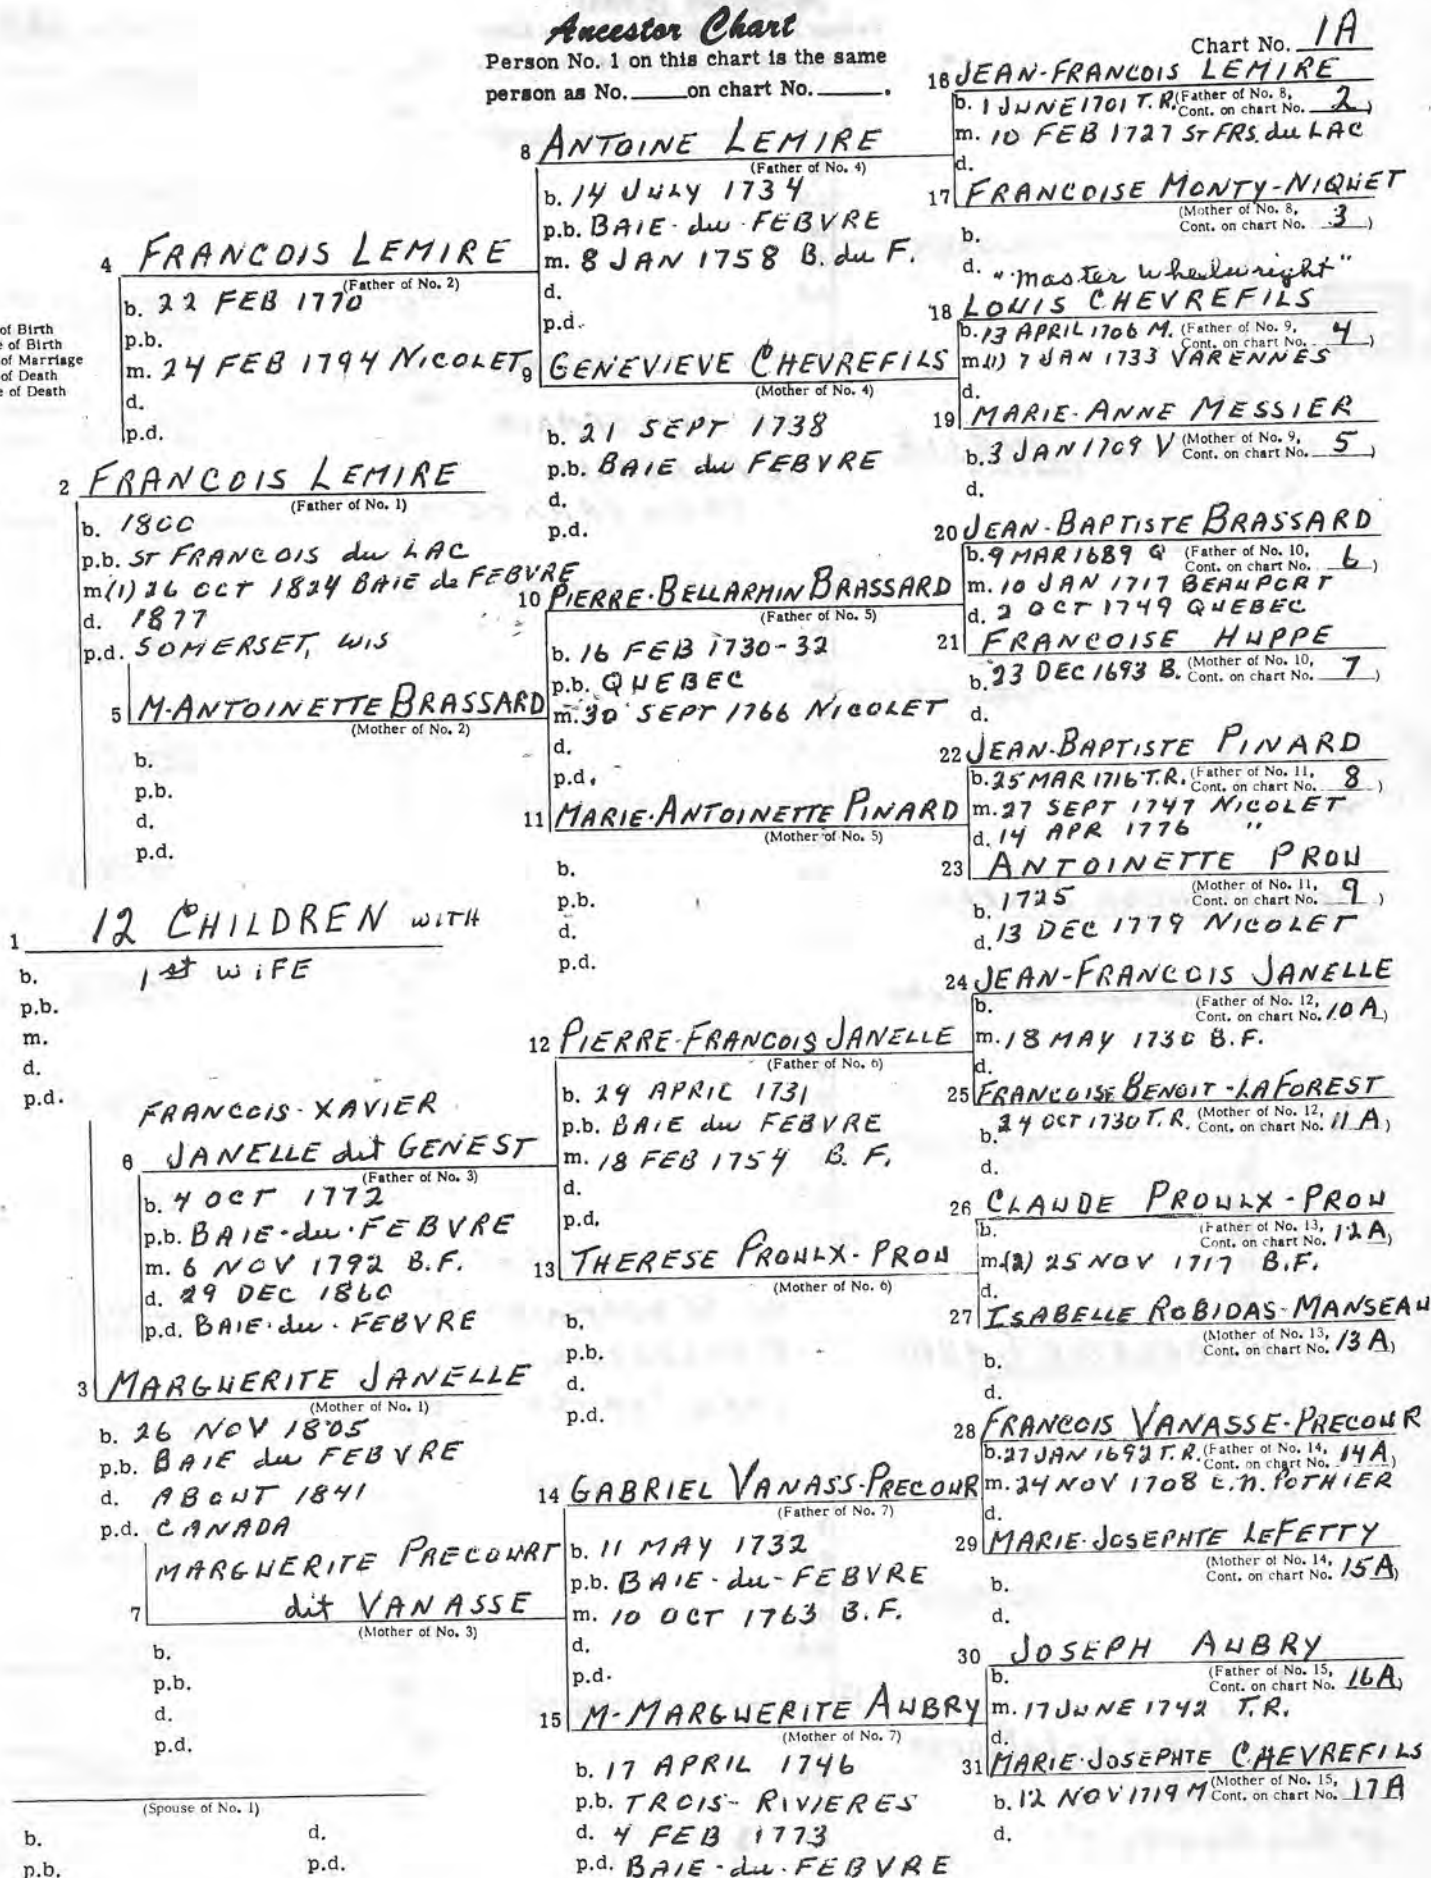 Ancestor Chart
Person No. 1 on this chart is the same
person as No. ____ on chart No. ____.
Chart No. 1A
of Birth
e of Birth
of Marriage
of Death
e of Death
1 12 CHILDREN WITH
1st WIFE
b.
p.b.
m.
d.
p.d.
2 FRANCOIS LEMIRE
(Father of No. 1)
b. 1800
p.b. ST FRANCOIS du LAC
m(1) 26 OCT 1824 BAIE de FEBVRE
d. 1877
p.d. SOMERSET, WIS
3 MARGUERITE JANELLE
(Mother of No. 1)
b. 26 NOV 1805
p.b. BAIE du FEBVRE
d. ABOUT 1841
p.d. CANADA
(Spouse of No. 1)
b.
d.
p.b.
p.d.
4 FRANCOIS LEMIRE
(Father of No. 2)
b. 22 FEB 1770
p.b.
m. 24 FEB 1794 NICOLET
d.
p.d.
5 M-ANTOINETTE BRASSARD
(Mother of No. 2)
b.
p.b.
d.
p.d.
FRANCOIS-XAVIER
6 JANELLE dit GENEST
(Father of No. 3)
b. 4 OCT 1772
p.b. BAIE-du-FEBVRE
m. 6 NOV 1792 B.F.
d. 29 DEC 1860
p.d. BAIE-du-FEBVRE
MARGUERITE PRECOURT
7 dit VANASSE
(Mother of No. 3)
b.
p.b.
d.
p.d.
8 ANTOINE LEMIRE
(Father of No. 4)
b. 14 JULY 1734
p.b. BAIE-du-FEBVRE
m. 8 JAN 1758 B. du F.
d.
p.d.
9 GENEVIEVE CHEVREFILS
(Mother of No. 4)
b. 21 SEPT 1738
p.b. BAIE du FEBVRE
d.
p.d.
10 PIERRE-BELLARMIN BRASSARD
(Father of No. 5)
b. 16 FEB 1730-32
p.b. QUEBEC
m. 30 SEPT 1766 NICOLET
d.
p.d.
11 MARIE-ANTOINETTE PINARD
(Mother of No. 5)
b.
p.b.
d.
p.d.
12 PIERRE-FRANCOIS JANELLE
(Father of No. 6)
b. 29 APRIL 1731
p.b. BAIE du FEBVRE
m. 18 FEB 1754 B. F.
d.
p.d.
13 THERESE PROULX-PROU
(Mother of No. 6)
b.
p.b.
d.
p.d.
14 GABRIEL VANASS-PRECOUR
(Father of No. 7)
b. 11 MAY 1732
p.b. BAIE-du-FEBVRE
m. 10 OCT 1763 B.F.
d.
p.d.
15 M-MARGUERITE AUBRY
(Mother of No. 7)
b. 17 APRIL 1746
p.b. TROIS-RIVIERES
d. 4 FEB 1773
p.d. BAIE-du-FEBVRE
16 JEAN-FRANCOIS LEMIRE
b. 1 JUNE 1701 T.R. (Father of No. 8,
Cont. on chart No. 2)
m. 10 FEB 1727 ST FRS. du LAC
d.
17 FRANCOISE MONTY-NIQUET
(Mother of No. 8,
Cont. on chart No. 3)
b.
d. "Master Wheelwright"
18 LOUIS CHEVREFILS
b. 13 APRIL 1706 M. (Father of No. 9,
Cont. on chart No. 4)
m(1) 7 JAN 1733 VARENNES
d.
19 MARIE-ANNE MESSIER
b. 3 JAN 1709 V (Mother of No. 9,
Cont. on chart No. 5)
d.
20 JEAN-BAPTISTE BRASSARD
b. 9 MAR 1689 Q (Father of No. 10,
Cont. on chart No. 6)
m. 10 JAN 1717 BEAUPORT
d. 2 OCT 1749 QUEBEC
21 FRANCOISE HUPPE
b. 23 DEC 1693 B. (Mother of No. 10,
Cont. on chart No. 7)
d.
22 JEAN-BAPTISTE PINARD
b. 25 MAR 1716 T.R. (Father of No. 11,
Cont. on chart No. 8)
m. 27 SEPT 1747 NICOLET
d. 14 APR 1776 "
23 ANTOINETTE PROU
(Mother of No. 11,
b. 1725 Cont. on chart No. 9)
d. 13 DEC 1779 NICOLET
24 JEAN-FRANCOIS JANELLE
b. (Father of No. 12,
Cont. on chart No. 10A)
m. 18 MAY 1730 B.F.
d.
25 FRANCOISE BENOIT-LAFOREST
b. 24 OCT 1730 T.R. (Mother of No. 12,
Cont. on chart No. 11A)
d.
26 CLAUDE PROULX-PROU
b. (Father of No. 13,
Cont. on chart No. 12A)
m.(2) 25 NOV 1717 B.F.
d.
27 ISABELLE ROBIDAS-MANSEAU
(Mother of No. 13,
Cont. on chart No. 13A)
b.
d.
28 FRANCOIS VANASSE-PRECOUR
b. 27 JAN 1692 T.R. (Father of No. 14,
Cont. on chart No. 14A)
m. 24 NOV 1708 C.N. POTHIER
d.
29 MARIE-JOSEPHTE LEFETTY
(Mother of No. 14,
Cont. on chart No. 15A)
b.
d.
30 JOSEPH AUBRY
b. (Father of No. 15,
Cont. on chart No. 16A)
m. 17 JUNE 1742 T.R.
d.
31 MARIE-JOSEPHTE CHEVREFILS
b. 12 NOV 1719 M (Mother of No. 15,
Cont. on chart No. 17A)
d.